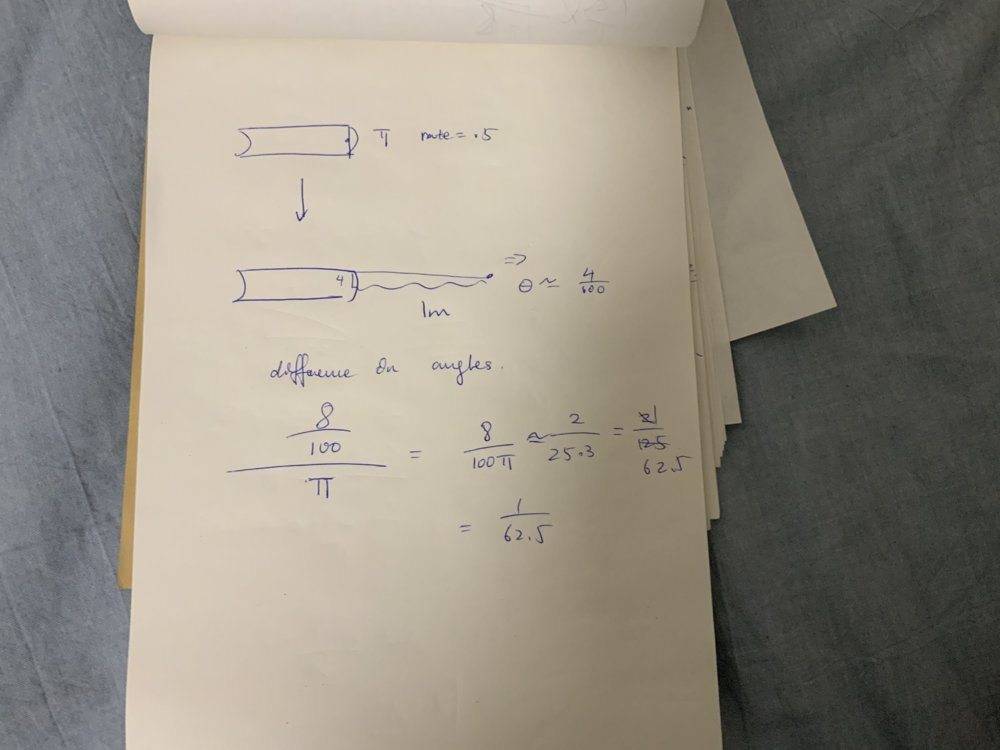 π rate = .5
4 1m ⇒ θ ≃ 4/100
difference in angles.
8/100 / π = 8/100π ≈ 2/25.3 = 1/62.5
= 1/62.5